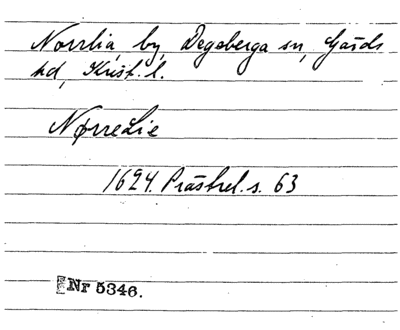 Norrlia, by, Degeberga sn, Gärds
hd, Krist. l.
NørreLie
1624. Prästrel. s. 63
Nr 5346.